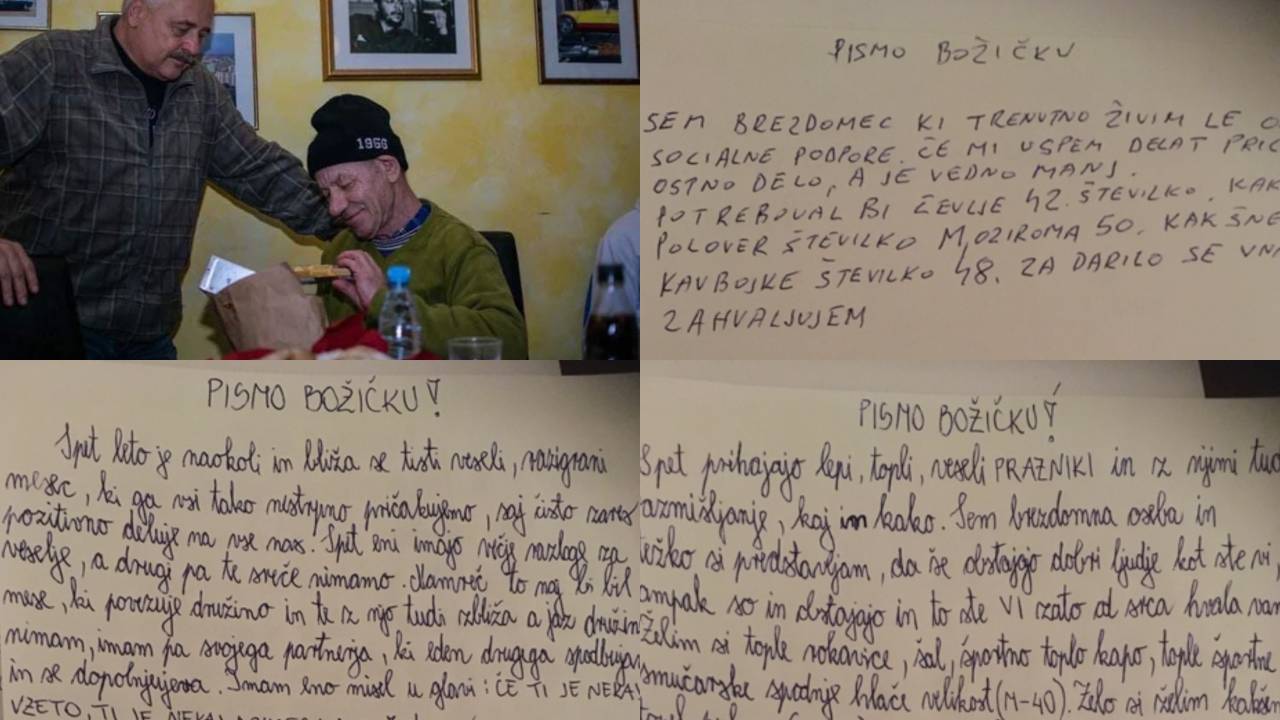 1966
PISMO BOŽIČKU
SEM BREZDOMEC KI TRENUTNO ŽIVIM LE
SOCIALNE PODPORE. ČE MI USPEM DELAT
OSTNO DELO, A JE VEDNO MANJ.
POTREBOVAL BI ČEVLJE 42. ŠTEVILKO.
POLOVER ŠTEVILKO M, OZIROMA 50.
KAVBOJKE ŠTEVILKO 48. ZA DARILO SE
ZAHVALJUJEM
PISMO BOŽIČKU!
Spet leto je naokoli in bliža se tisti veseli, razigrani
mesec, ki ga vsi tako nestrpno pričakujemo, saj čisto zares
pozitivno deluje na vse nas. Spet eni imajo večje razloge za
veselje, a drugi pa te sreče nimamo. Namreč to naj bi bil
mesec, ki povezuje družino in te z njo tudi zbliža a jaz
nimam, imam pa svojega partnerja, ki eden drugega
in se dopolnjujeva. Imam eno misel v glavi: ČE TI JE
VZETO, TI JE
PISMO BOŽIČKU!
Spet prihajajo lepi, topli, veseli PRAZNIKI in z njimi
azmišljanje, kaj in kako. Sem brezdomna oseba in
težko si predstavljam, da še obstajajo dobri ljudje kot ste vi,
ampak so in obstajajo in to ste VI zato od srca hvala
želim si tople rokavice, šal, športno toplo kapo, tople športne
smučarske spodnje hlače velikost (M-40). Zelo si želim